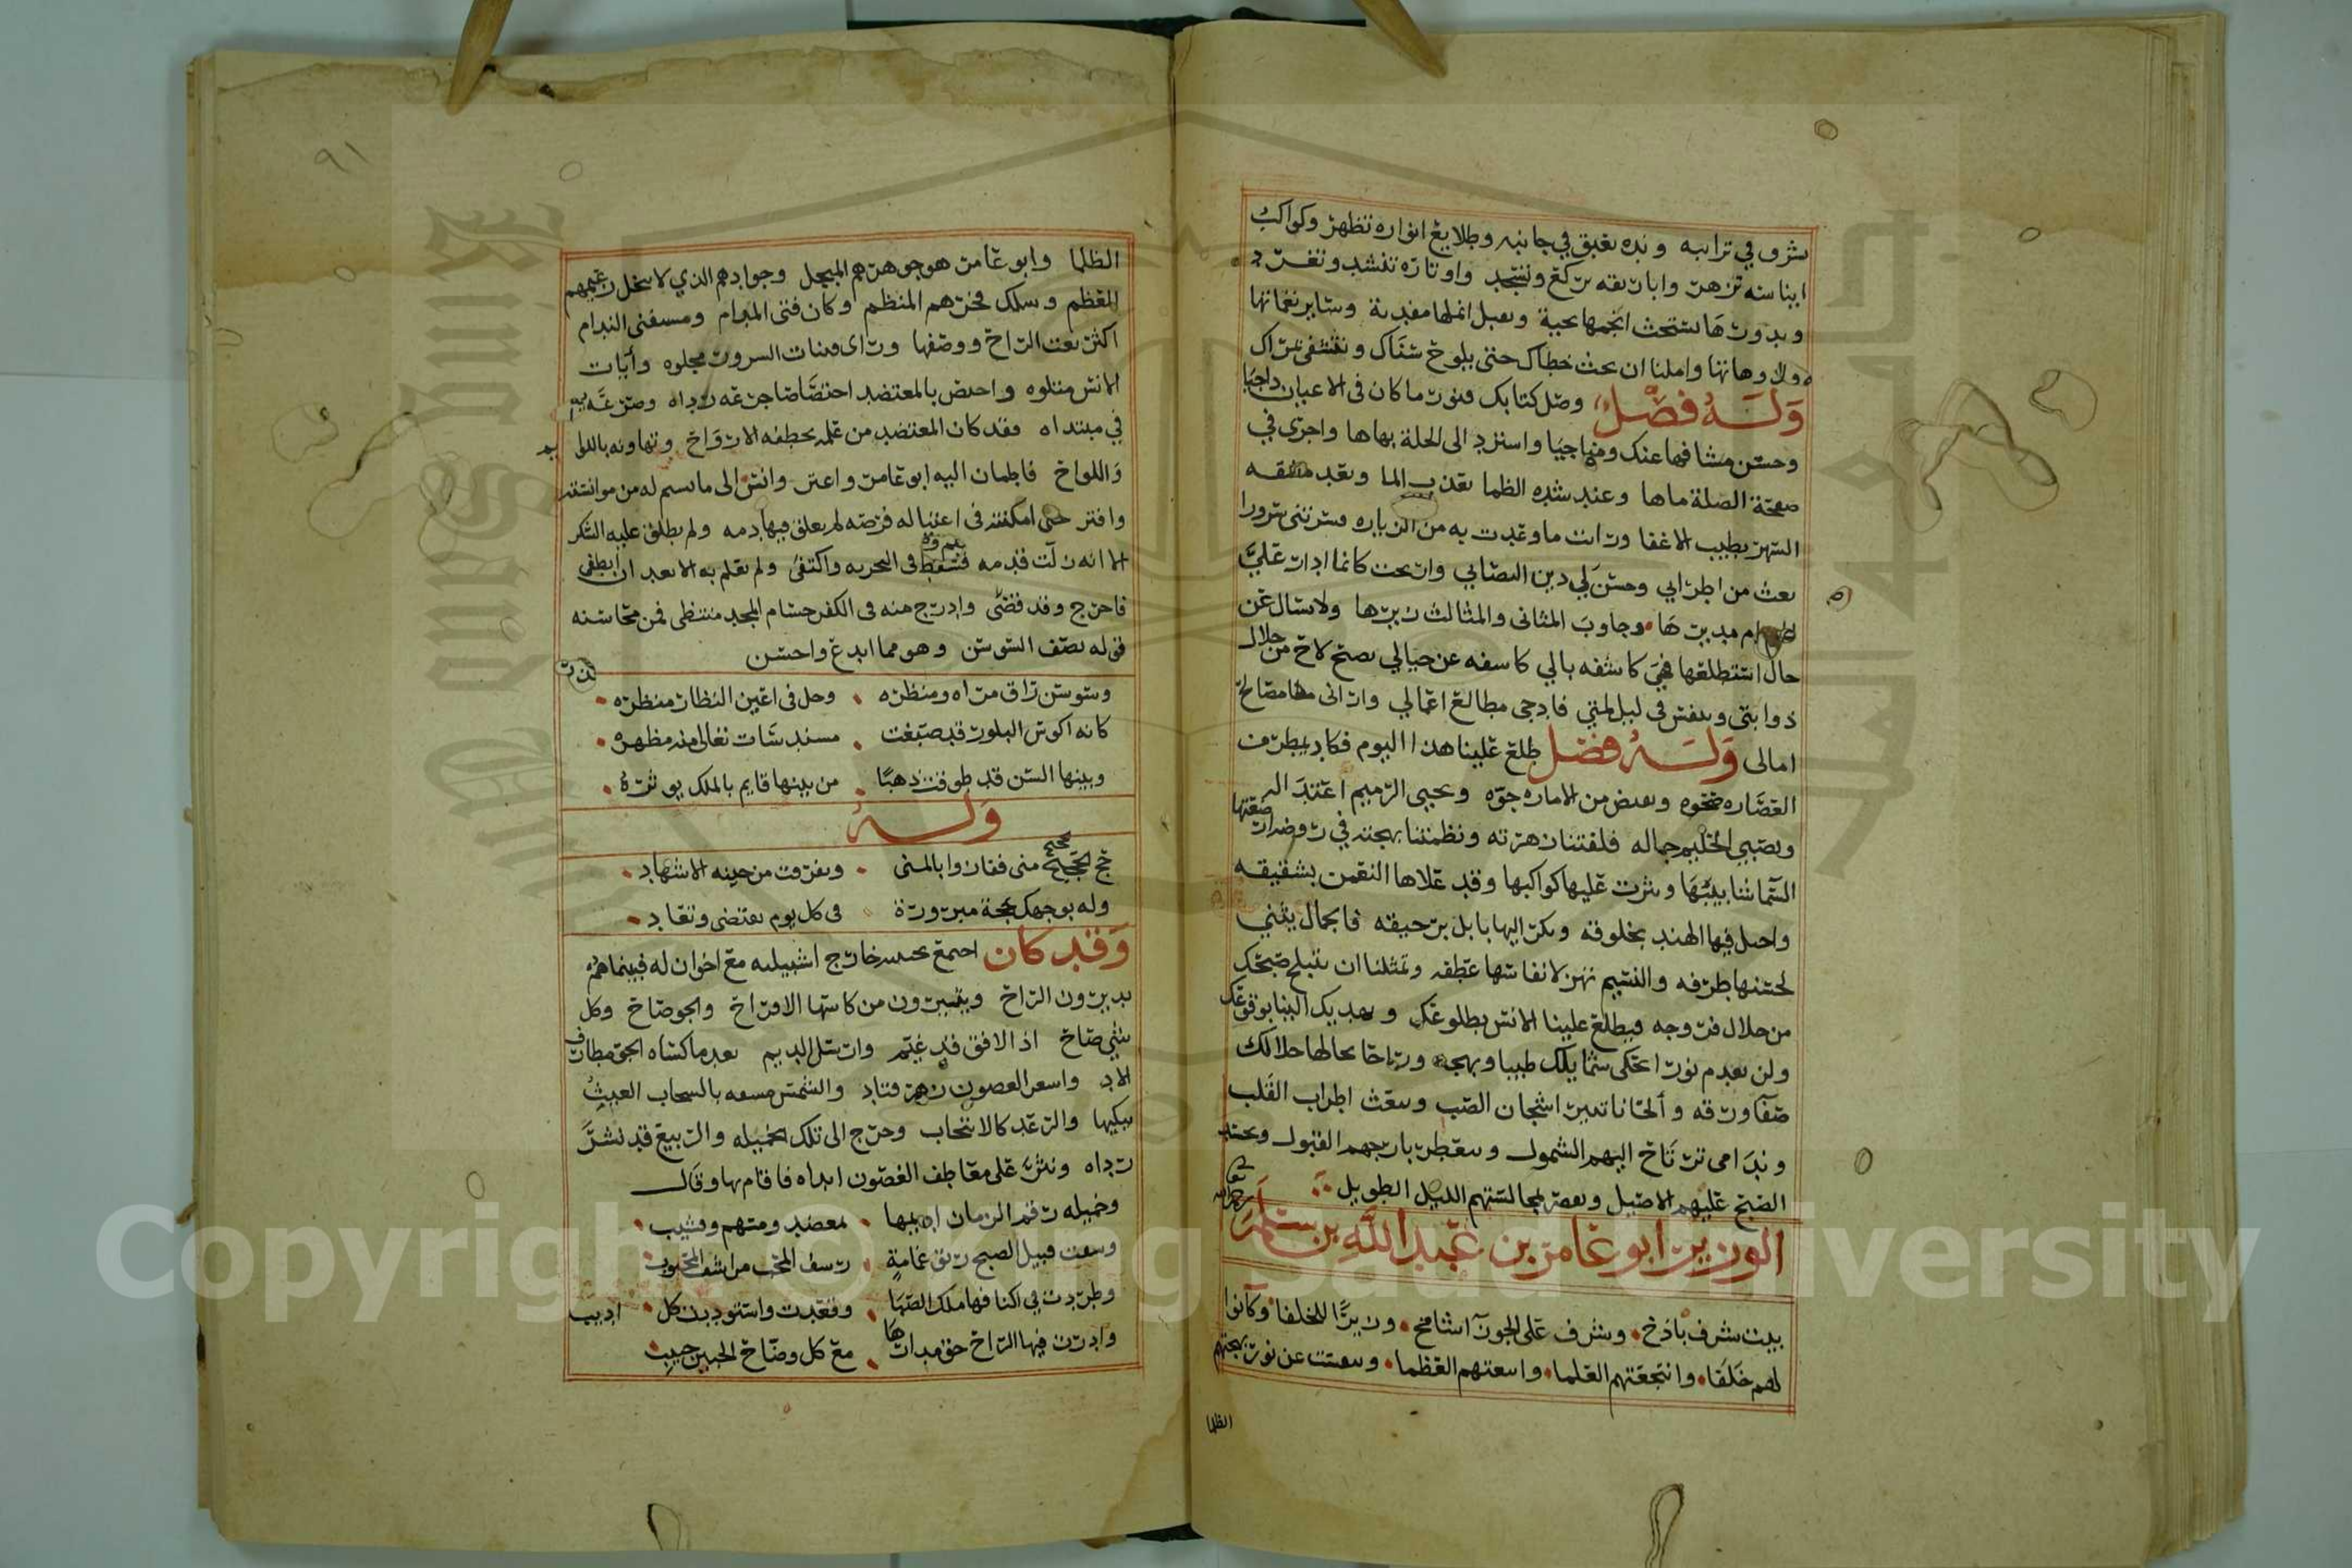 بشرف في ترابه ونده تعبق في جانبه وطلايع انواره تظهر وكواكب
ايناسه تزهر واباريقه تركع وتسجد واوتاره تنشد وتغرد
وبدورها تستحث انجمها محبة وتقبل انملها مفدية وساير نغماتها
ولا وهاتها واملنا ان يحث خطاك حتى يلوح سناك ونشتفي بمراك
وله فصل وصل كتابك فنور ما كان في الاعيان داجيا
وحسن مشافها عنك ومناجيا واسترد الى الحلة بهاها واجرى في
صفحة الصلة ماها وعند شدة الظما يعذب الما وبعد مشقه
السهر يطيب الاغفا ورات ما وعدت به من الزياره فسرتني سرورا
بعث من اطرابي وحسن لي دين التصابي وارتحت كانما ادار علي
المدام مديرها وجاوب المثاني والمثالث زيرها ولا تسال عن
حال استطلعتها فهي كاشفه بالي كاسفه عن خيالي بصبح لاح من خلال
ذوابتي وتنفس في ليل لمتي فادجى مطالع اعمالي واراني مصارع
امالي وله فصل طلع علينا هذا اليوم فكاد يمطر من
الغضاره صحوه ويعبض من الاناره جوه ويحيي الرميم اعتداله
ويصبي الحليم جماله فلفتنا زهرته ونظمتنا بهجته في روضة ارضعتها
السما شابيبها ونثرت عليها كواكبها وقد علاها النعمن بشقيقه
واحل فيها الهند بخلوقه وبكر اليها بابل برحيقه فالجمال يثني
لحسنها طرفه والنسيم يهز لانفاسها عطفه وتمثلنا ان يتبلج صبحك
من خلال فروجه فيطلع علينا الانس بطلوعك ويهديك الينا بوقوعك
ولن يعدم نورا تحكى شمايلك طيبا وبهجه وراحا يخالها خلالك
صفا ورقه والحانا تثير اشجان الصب وتبعث اطراب القلب
وندامى ترتاح اليهم الشمول وتتعطر بارجهم القبول ويحسد
الصبح عليهم الاصيل ويقصر بمجالستهم الليل الطويل
الوزير ابو عامر بن عبد الله بن مسلمه
بيت شرف باذخ وشرف على الجوزا شامخ وزيرا للخلفا وكانوا
لهم خلفا وانتجعتهم العلما واتبعتهم العظما وتبسمت عن نور بهجتهم
الظلما
٩١
الظلما وابو عامر هو جوهرهم المبجل وجوادهم الذي لا يبخل زعيمهم
المعظم وسلك فخرهم المنظم وكان فتى المدام ومستفتى الندام
اكثر نعت الراح ووصفها وراى قينات السرور مجلوه وايات
الانس متلوه واختص بالمعتضد اختصاصا جرعه رداه وصرعه
في مبتداه فقد كان المعتضد من علمه يخطفه الارواح وتهاونه باللوام
واللواح فاطمان اليه ابو عامر واغتر وانس الى ما بسم له من موانسته
وافتر حتى امكنته في اغتياله فرصه لم يعلق فيها دمه ولم يطلق عليه الشكر
الا انه زلت قدمه فسقط في البحيره واكتفى ولم يعلم به الا بعد ان طفي
فاخرج وقد قضى وادرج منه في الكفن حسام المجد منتضى فمن محاسنه
قوله يصف السوسن وهو مما ابدع واحسن
وسوسن راق مراه ومنظره وحل في اعين النظار منظره
كانه اكوس البلور قد صبغت مسندسات تعالى الله مظهره
وبينها السن قد طوقت ذهبا من بينها قايم بالملك يوثره
وله
حج الحجيج منى ففازوا بالمنى وتفرقت من حينه الاشهاد
وله بوجهك حجة مبرورة في كل يوم تقتضى وتعاد
وقد كان اجتمع بجنب خارج اشبيليه مع اخوان له فبينما هم
يديرون الراح ويشربون من كاسها الافراح والجو صاح وكل
شي صاح اذ الافق قد غيم وارسل الديم بعد ما كساه الجو مطارف
الاد واشعر الغصون زهر قتاد والشمس منتقبه بالسحاب الغيث
يبكيها والرعد كالانتحاب وخرج الى تلك الخميله والربيع قد نشر
رداه ونثر على معاطف الغصون انداه فاقام بها وقال
وخميله رقم الزمان اديمها بمعضد ومسهم وقشيب
وسعت قبيل الصبح ريق غمامة رشف المحب مراشف المحبوب
وطردت في اكنافها ملك الصبا وقعدت واستوزرت كل اديب
وادرت فيها الراح حق مدارها مع كل وضاح الجبين حبيب